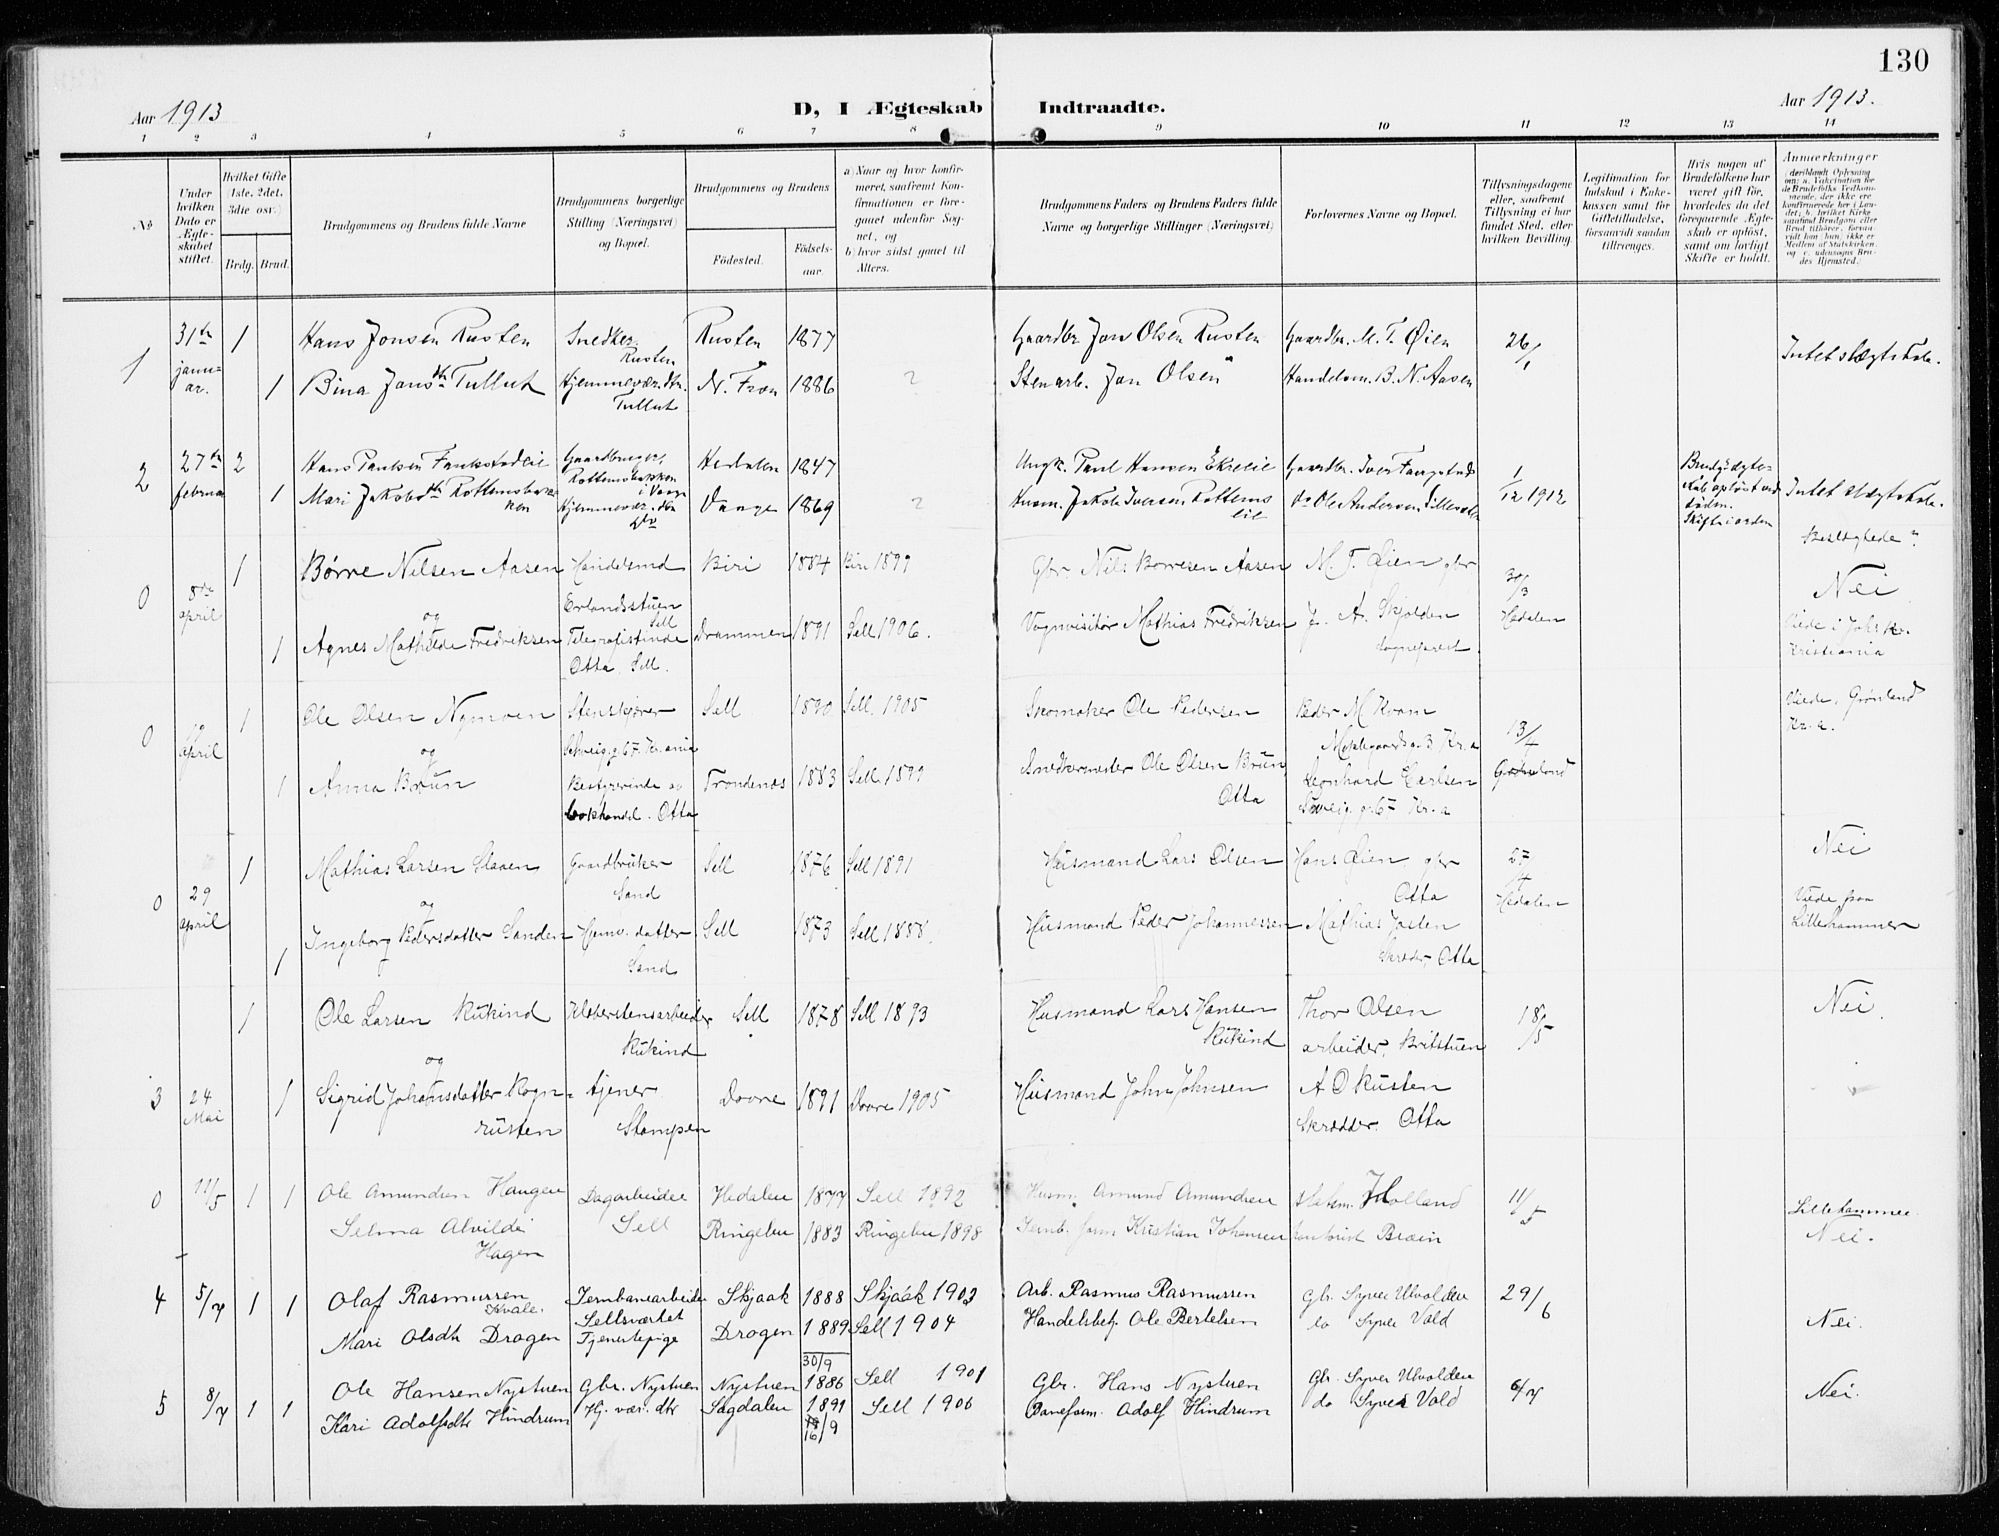 130
Aar 1913
D, I Ægteskab Indtraadte.
Aar 1913.
1 2 3 4 5 6 7 8 9 10 11 12 13 14
No
Under hvilken Dato er Ægteskabet stiftet.
Hvilket Gifte (1ste, 2det, 3die osv.)
Brdg. Brud.
Brudgommens og Brudens fulde Navne
Brudgommens borgerlige Stilling (Næringsvei) og Bopæl.
Brudgommens og Brudens
Födested.
Födselsaar.
a) Naar og hvor konfirmeret, saafremt Konfirmationen er foregaaet udenfor Sognet, og
b) hvor sidst gaaet til Alters.
Brudgommens Faders og Brudens Faders fulde Navne og borgerlige Stillinger (Næringsvei)
Forlovernes Navne og Bopæl.
Tillysningsdagene eller, saafremt Tillysning ei har fundet Sted, efter hvilken Bevilling.
Legitimation for Indskud i Enkekassen samt for Giftetilladelse, forsaavidt saadan tiltrænges.
Hvis nogen af Brudefolkene har været gift før, hvorledes da det foregaaende Ægteskab er opløst, samt om lovligt Skifte er holdt.
Anmerkninger
1 31te januar. 1 Hans Jonsen Rusten Snedker Rusten Rusten 1877 Gaardbr. Jon Olsen Rusten Gaardbr. M. T. Øien 26/1 Intet slægtskab.
1 Bina Jonsdtr Tullut Hjemmevær. dtr. Tullut N. Fron 1886 ? Stenarb. Jon Olsen Handelsm. B. N. Aasen
2 27de februar 2 Hans Paulsen Gaardbruger, Rottumsbakken i Vaage Hedalen 1847 Ungk. Paul Hansen Ekreeie Gaardbr. Iver 1/12 1912 Intet slægtskab.
1 Mari Jakobsdtr Rottumsbakken Hjemmevær. dtr Vaage 1869 ? Husm. Jakob Iversen do Ole Andersen
0 8de april 1 Børre Nilsen Aasen Handelsmd Erlandsstuen Sell Biri 1884 Biri 1899 Gbr. Nils Borresen Aasen M. T. Øien gbr 30/3 Hedalen Beslægtede? Nei
og
1 Agnes Mathilde Fredriksen Telegrafistinde Otta Sell. Drammen 1891 Sell 1906. Vognvisitør Mathias Fredriksen J. A. Skjolden sogneprest Viede i Joh.s k. Kristiania
0 april 1 Ole Olsen Nymoen Stenskjærer Schveig.g. 67. Kr.ania Sell 1890 Sell. 1905 Skomaker Ole Pedersen Peder M Kvam 13/4 Grønland Viede, Grønland Kr.a.
og
1 Anna Bruun Bestyrerinde av bokhandel. Otta Trondenæs 1883 Sell 1899 Snedkermester Ole Olsen Bruun Otta Leonhard Carlsen Sweig. g. 67 Kr.a
0 29 april 1 Mathias Larsen Slaaen Gaardbruker Sand Sell 1876 Sell 1891 Husmand Lars Olsen Hans Øien, gbr Otta 27/4 Hedalen Nei
og
1 Ingeborg Pedersdatter Sanden Hjemv. datter Sand Sell 1873 Sell 1888. Husmand Peder Johannessen Mathias Josten Skræder, Otta Viede paa Lillehammer
1 Ole Larsen Rukind Klæberstensarbeider Rukind Sell 1878 Sell 1893 Husmand Lars Hansen Rukind Thor Olsen arbeider, Britstuen 18/5 Nei.
og
3 24 Mai 1 Sigrid Johansdatter Rognrusten tjener Stampen Dovre 1891 Dovre 1905 Husmand John Johnsen A O Rusten Skrædder. Otta
0 11/5 1 1 Ole Amundsen Haugen Dagarbeider Sell Hedalen 1877 Sell 1892 Husm. Amund Amundsen Holland 11/5 Lillehammer.
Selma Alvilde Hagen Ringebu 1883 Ringebu 1898 Jernb. form Kristian Johansen Kontorist Bræin Nei.
4 5/7 1 1 Olaf Rasmussen Kvale. Jernbanearbeider Sellsværket Skjaak 1888 Skjaak 1903 Arb. Rasmus Rasmussen Gbr. Syver Ulvolden 29/6
Mari Olsdtr Dragen Tjenestepige Dragen 1889 Sell 1904 Handelsbetj. Ole Bertelsen do Syver Vold Nei.
5 8/7 1 1 Ole Hansen Nystuen Gbr. Nystuen Nystuen 30/9 1886 Sell 1901 Gbr. Hans Nystuen Gbr. Syver Ulvolden 6/7 Nei.
Kari Adolfsdtr Hindrum Hj. vær. dtr Sagdalen 1891 16/9 Sell 1906 Baneform. Adolf Hindrum do Syver Vold